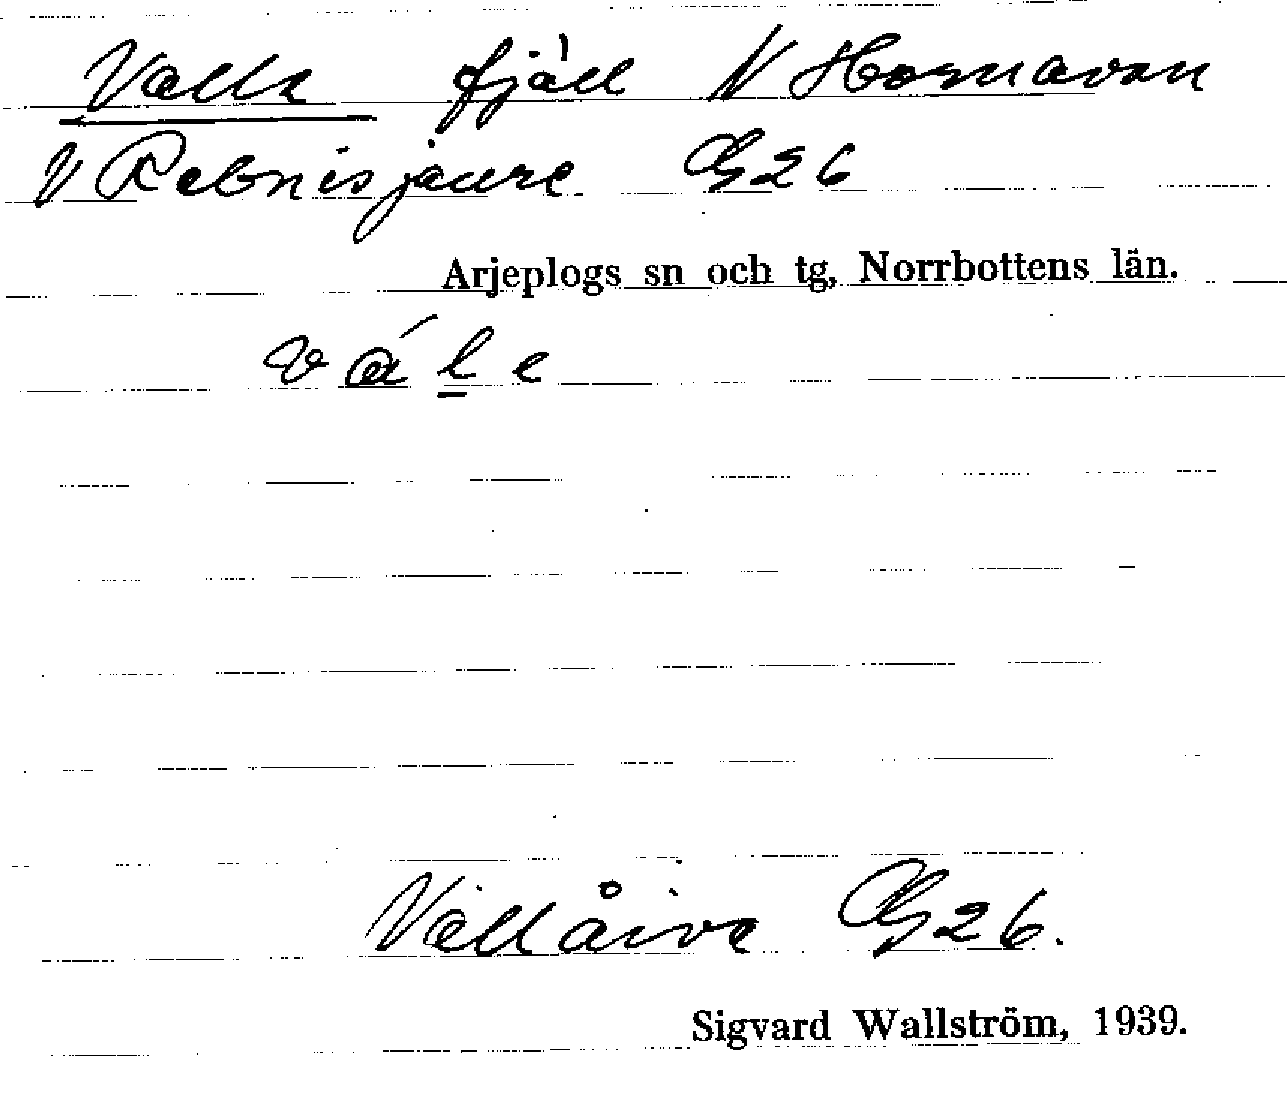 Valle fjäll N Hornavan
V Rebnisjaure. G26
Arjeplogs sn och tg, Norrbottens län.
vál̲e
Vallåive G26.
Sigvard Wallström, 1939.